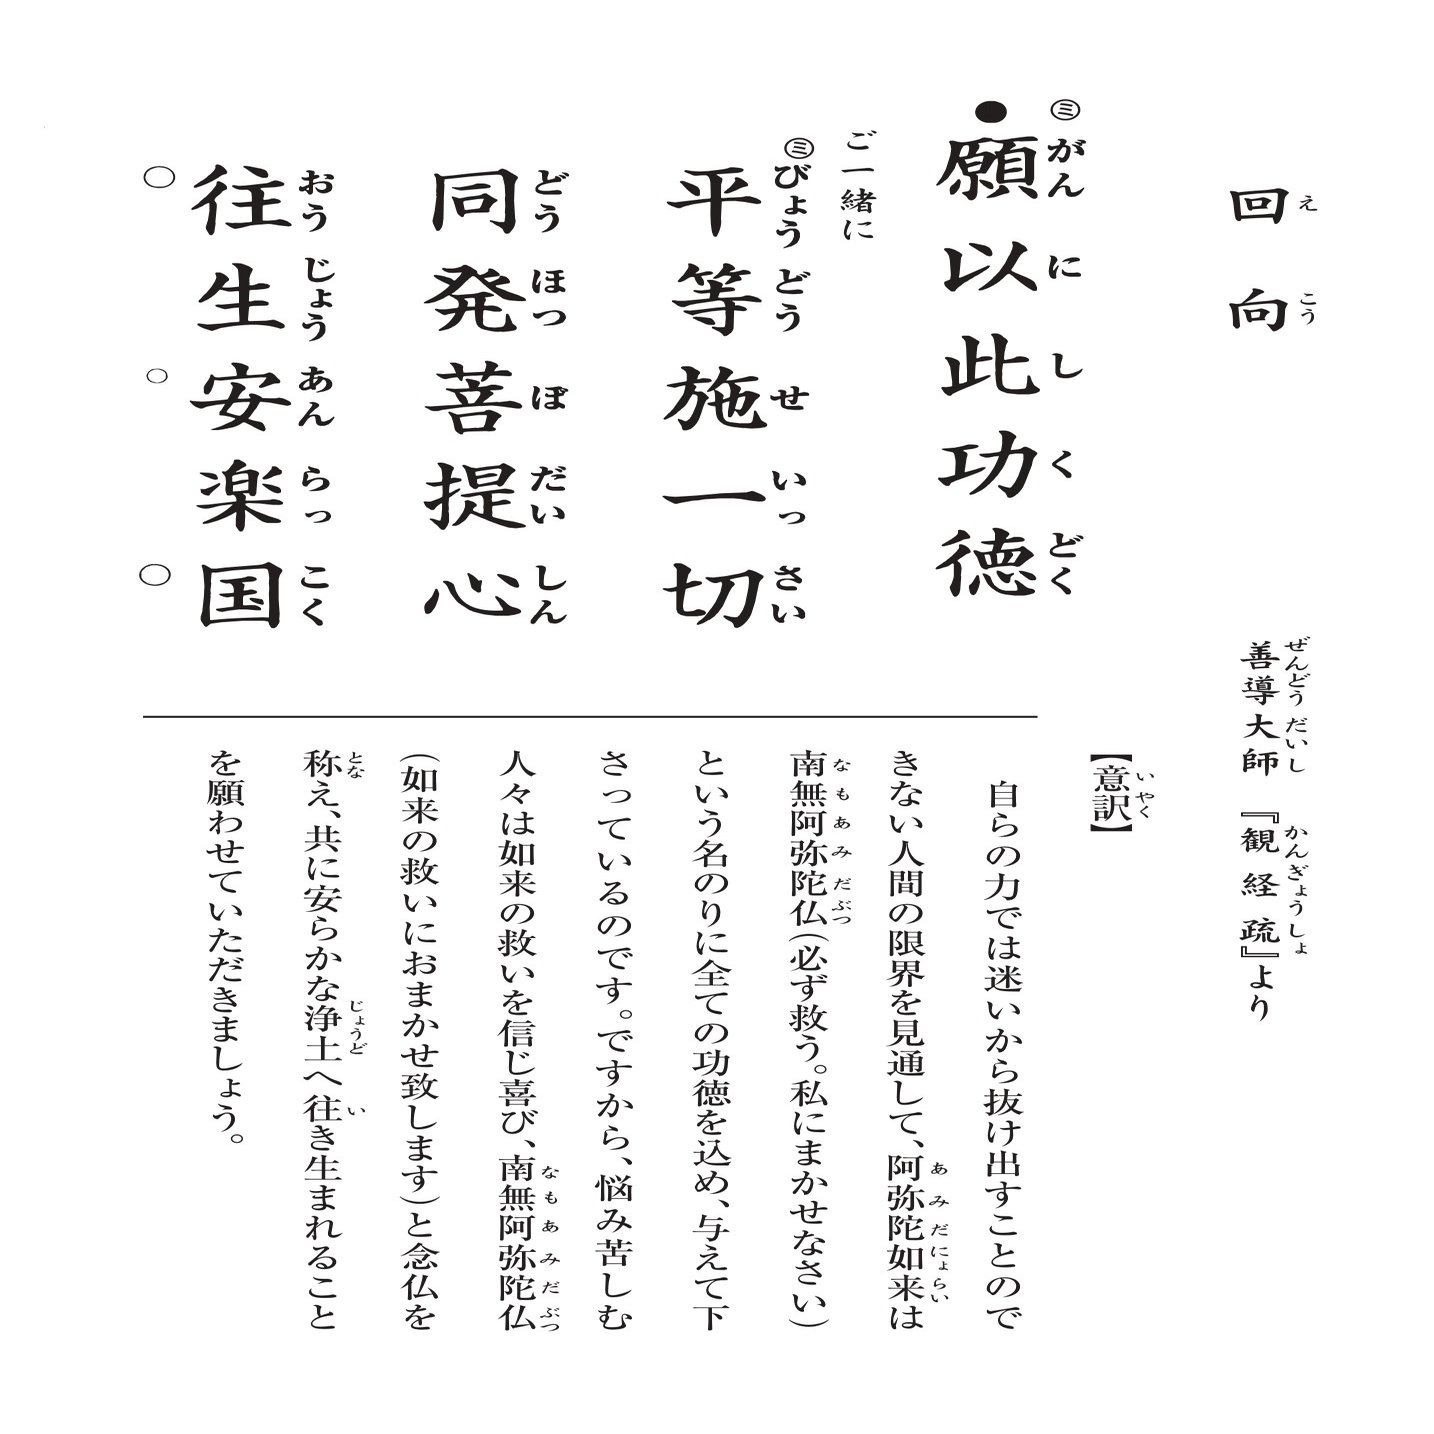 回向
えこう
善導大師 『観経疏』より
ぜんどうだいし かんぎょうしょ
㊂がんにしくどく
●願以此功徳
ご一緒に
㊂びょうどうせいっさい
平等施一切
どうほつぼだいしん
同発菩提心
おうじょうあんらっこく
往生安楽国
○ ○ ○
【意訳】
いやく
自らの力では迷いから抜け出すことので
きない人間の限界を見通して、阿弥陀如来は
あみだにょらい
南無阿弥陀仏(必ず救う。私にまかせなさい)
なもあみだぶつ
という名のりに全ての功徳を込め、与えて下
さっているのです。ですから、悩み苦しむ
人々は如来の救いを信じ喜び、南無阿弥陀仏
なもあみだぶつ
(如来の救いにおまかせ致します)と念仏を
称え、共に安らかな浄土へ往き生まれること
とな じょうど い
を願わせていただきましょう。